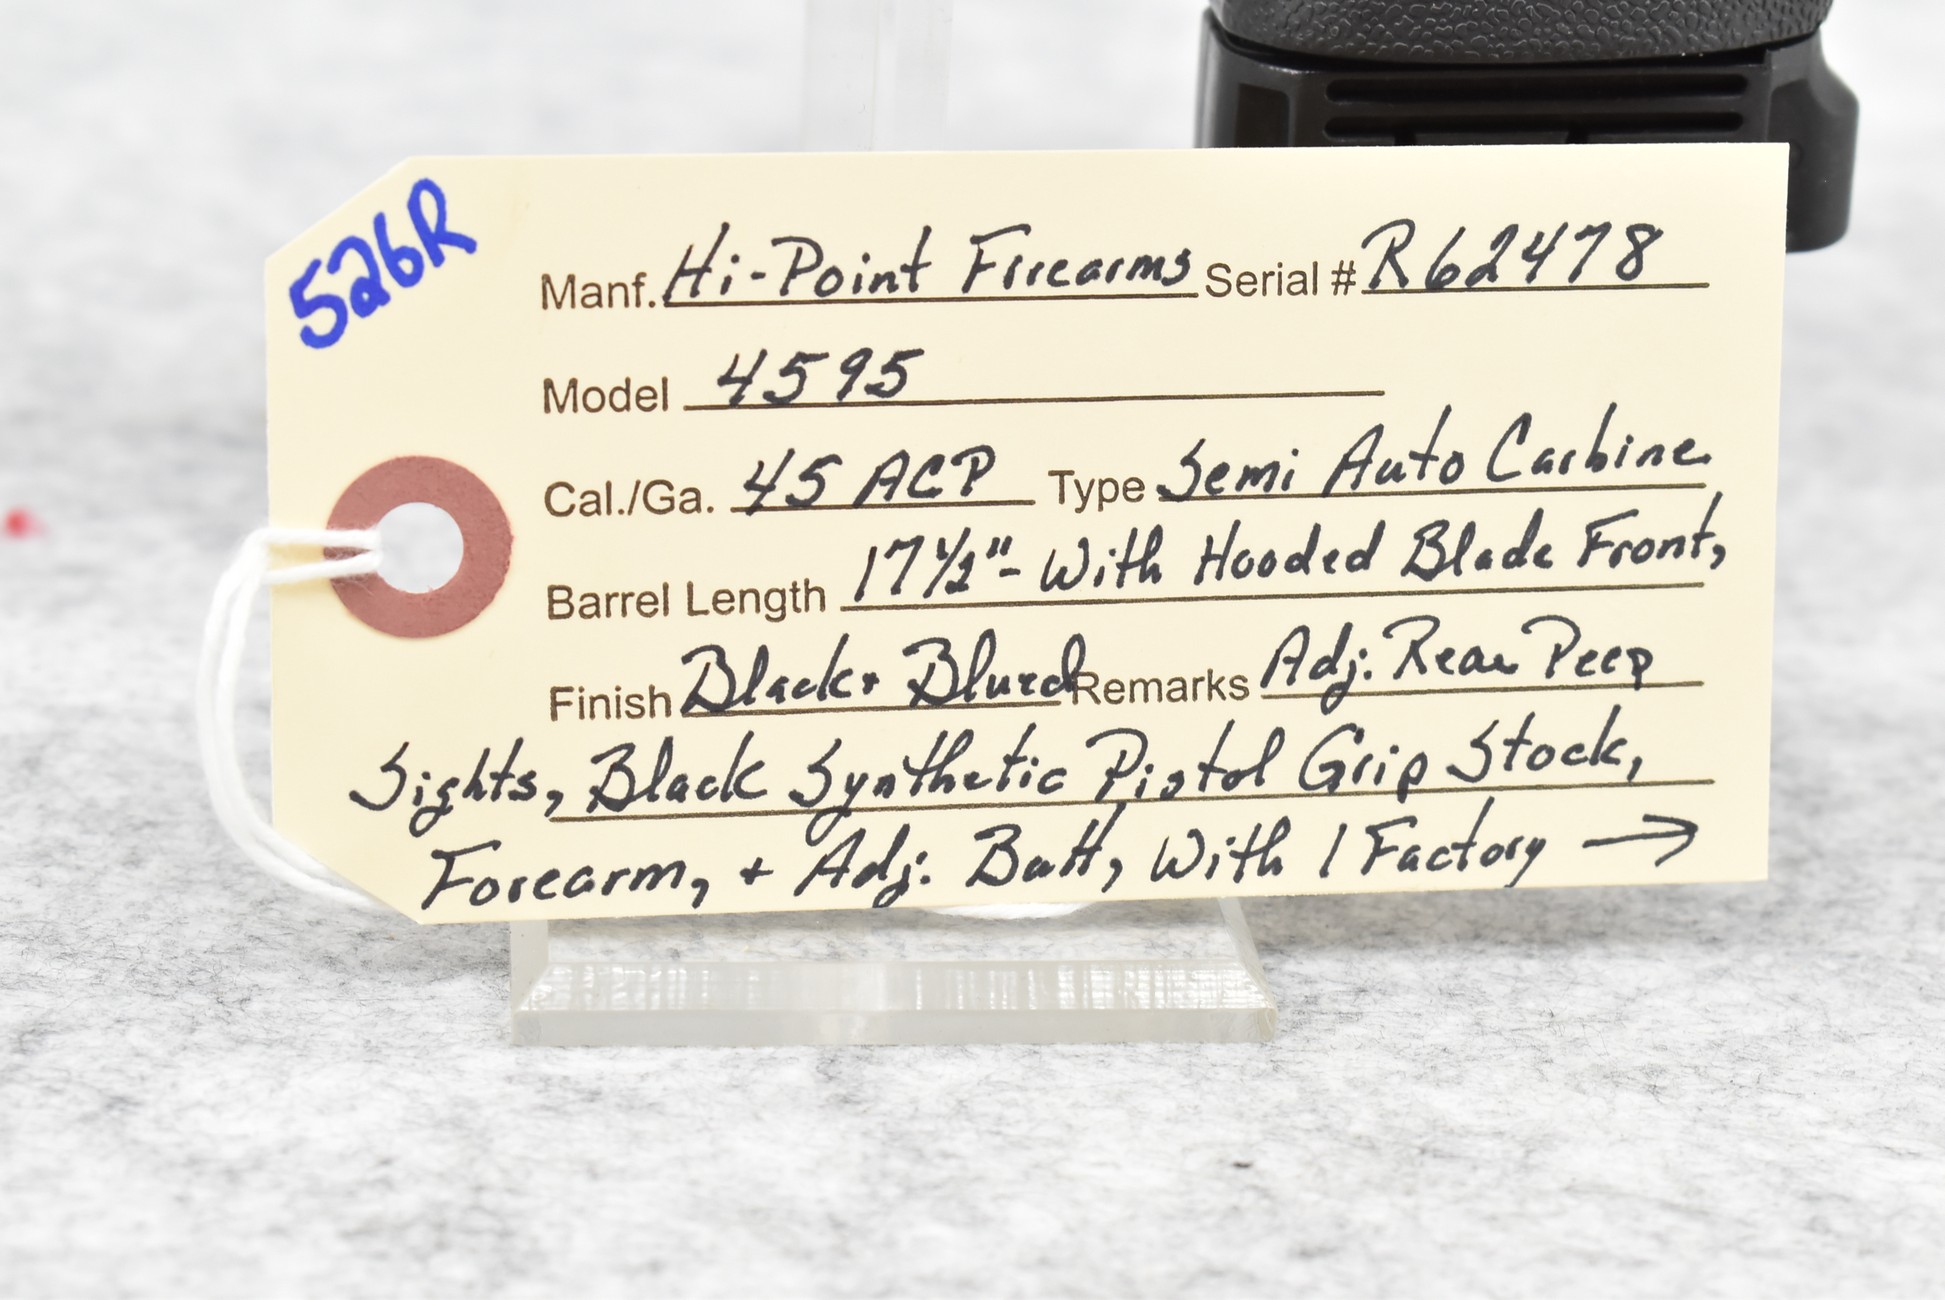 526R
Manf. Hi-Point Firearms Serial # R62478
Model 4595
Cal./Ga. 45 ACP Type Semi Auto Carbine
Barrel Length 17 1/2" - With Hooded Blade Front,
Finish Black + Blued Remarks Adj. Rear Peep
Sights, Black Synthetic Pistol Grip Stock,
Forearm, + Adj. Butt, With 1 Factory →